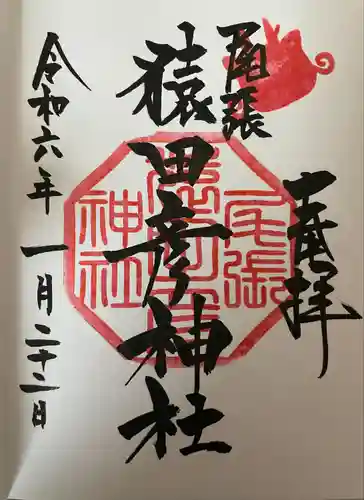 奉拝
尾張
猿田彦神社
令和六年一月二十二日
尾張
神社